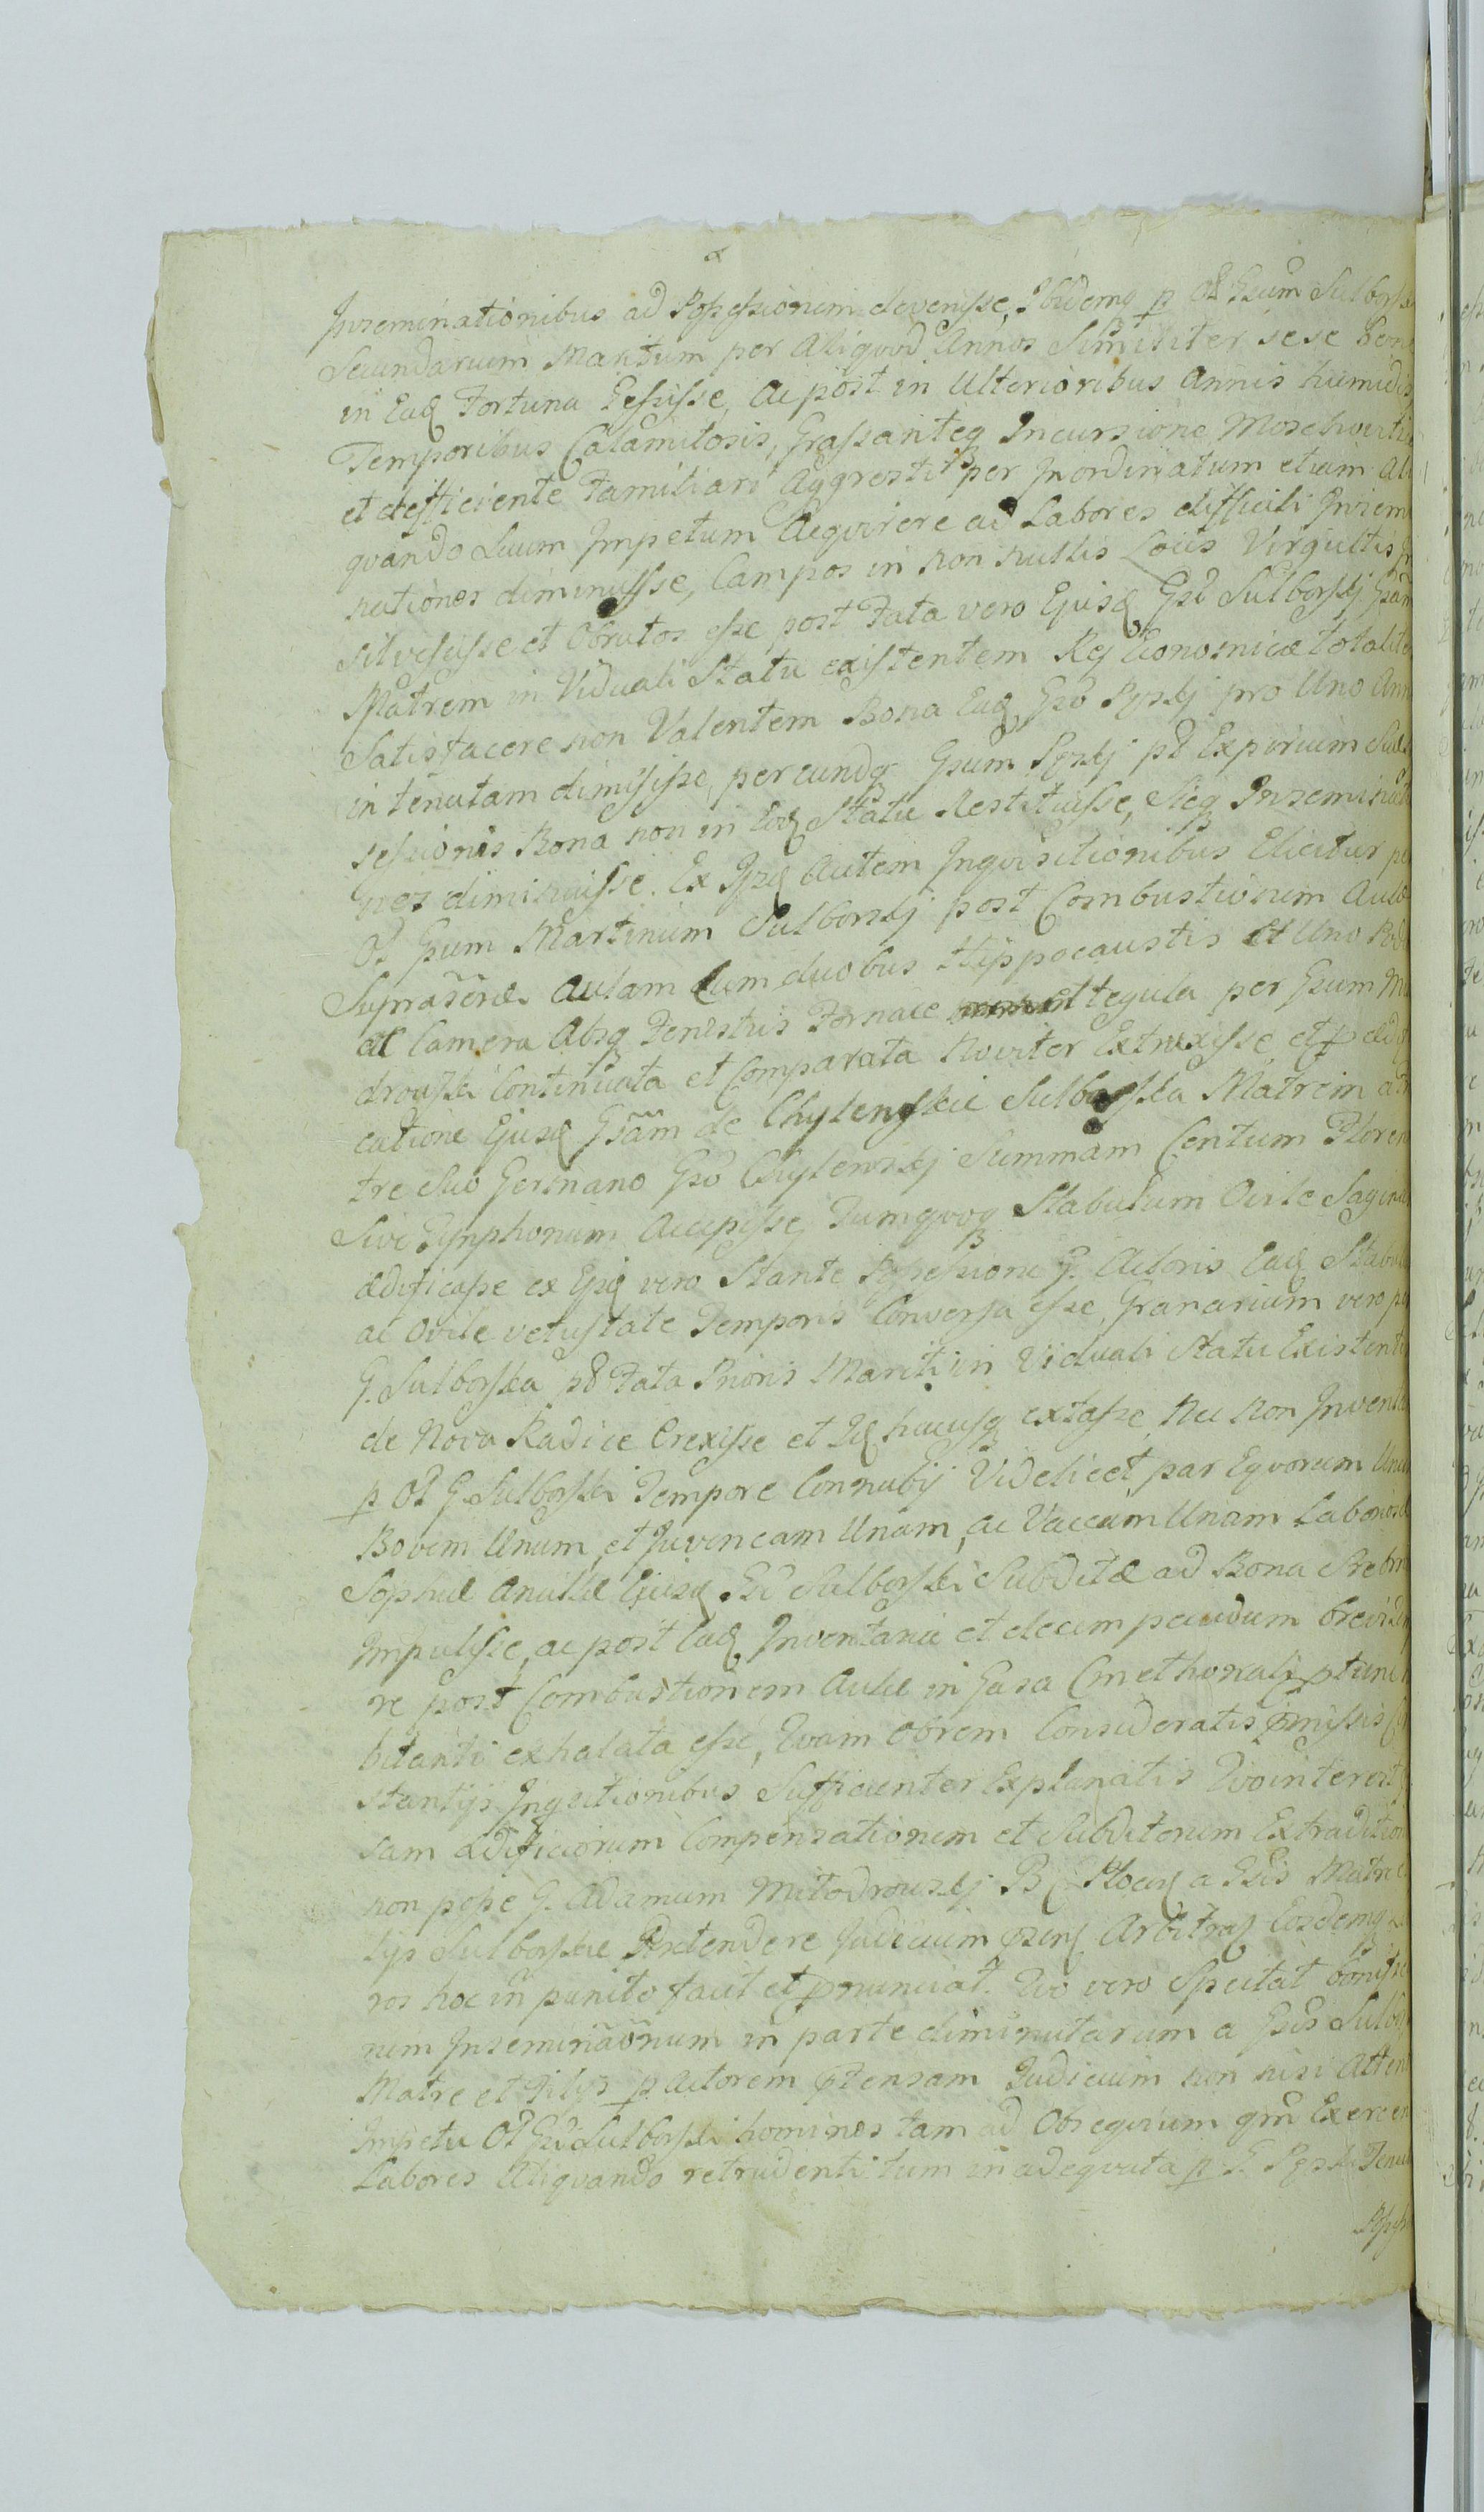 Inseminationibus ad Possessionem devenisse, Ibidemq p Ol Gsum Sulborsk
Secundarium Maritum per Aliquod Annos Similiter sese bene
in Eadq Fortuna Gessisse, Ac post in Ulterioribus Annis humidis
Temporibus Calamitosis, Grassanteq Incursione Moschvi
et defficiente Familiari Aggresti per Inordinatum etiam Ali
quando Suum Impetum Acqvirere ad Labores difficili Insemi
nationes diminuisse, Campos in non nullis Locis Virgultis
silvesisse et Obrutos esse, post Fata vero Ejusd Gsi Sulborskj Gsam
Matrem in Viduali Statu existentem Rej Economicæ totalite
Satisfacere non Valentem Bona Eadq Gso Pyskj pro Uno Ann
in tenutam dimisisse, per eundq Gsum Pyskj pt Expirium
sessionis Bona non in Eodq Statu Restituisse, Sicq Insemina
nes diminuisse. Ex Ijsq Autem Inqvisitionibus Elicitur per
Ol Gsum Martinum Sulborskj post Combustionem Aulæ
Aulam Cum duobus Hippocaustis et Uno
et Camera Absq Fenestris Fornace et tegula per Gsum Mi
drouski Continuata et Comparata Noviter Extruxisse, et p ædifi
catione Ejusq Gsam de Chylenskie Sulborska Matrem a
tre Suo Germano Gso Chylewskj Summam Centum Floren
Sive Tymphonum Accepisse, Tumqvoq Stabulum Ovile
ædificasse ex Ijsq vero Stante Possessione G. Actoris Eadq Stabul
ac Ovile vetustate Temporis Conversa esse, Granarium vero per
G. Sulborska pt Fata Prioris Mariti in Viduali Statu Existente
de Nova Radice Erexisse et Idq hucusq extasse, Nec Non Inventa
p Ol G. Sulborski Tempore Connubij Videlicet, par Eqvorum Unum
Bovem Unum et Juvencam Unam, ac Vaccam Unam Laboriosæ
Sophiæ Anullæ Ejusq Gsi Sulborski Subditæ ad Bona
Impulisse, ac post Eadq Inventaria et decem pecudum brevi
re post Combustionem Aulæ in Casa Cmethonali
bitanti exhalata esse, Qvam obrem Consideratis pmissis
stantijs Inqsitionibus Sufficienter Explanatis Qvo interest
sam ædificiorum Compensationem et Subditorum Extradition
non posse G. Adamum Mitodrouskj B Plocq a Gsis Matre
lijs Sulborskie Prætendere Judicium psens Arbitraq Eosdemq
ros hoc in puncto facit et pnunciat. Qvo vero Spectat
num Inseminãonum in parte diminutarum a Gsis Sulbor
Matre et Filijs p. Actorem ptensam Judicium non nisi Atten
Impetu Ol Gsi Sulborski homines tam ad Obseqvium qm Exercen
Labores Aliqvando retrudenti tum inadeqvata p G. Pyski Tenu